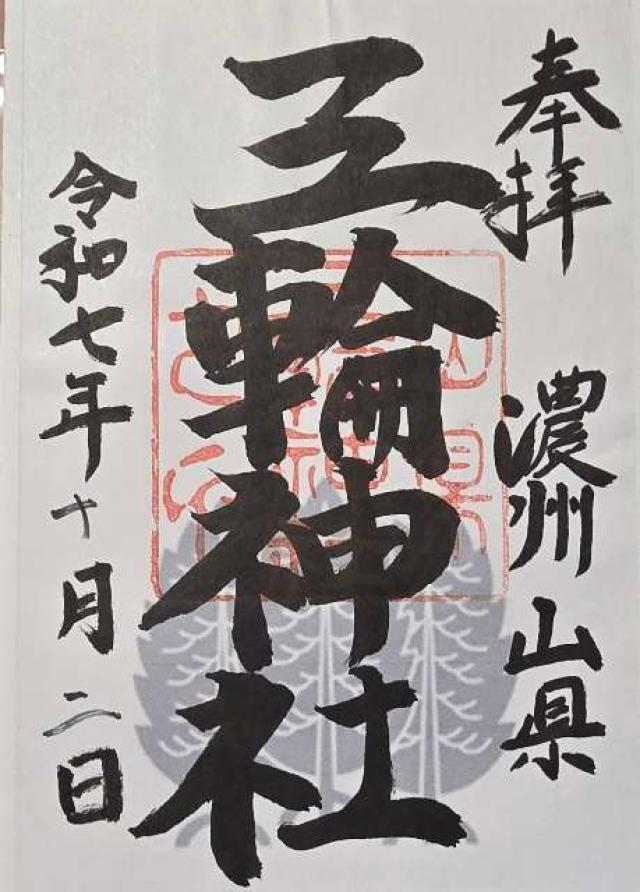 奉拝
濃州山県
三輪神社
令和七年十月二日